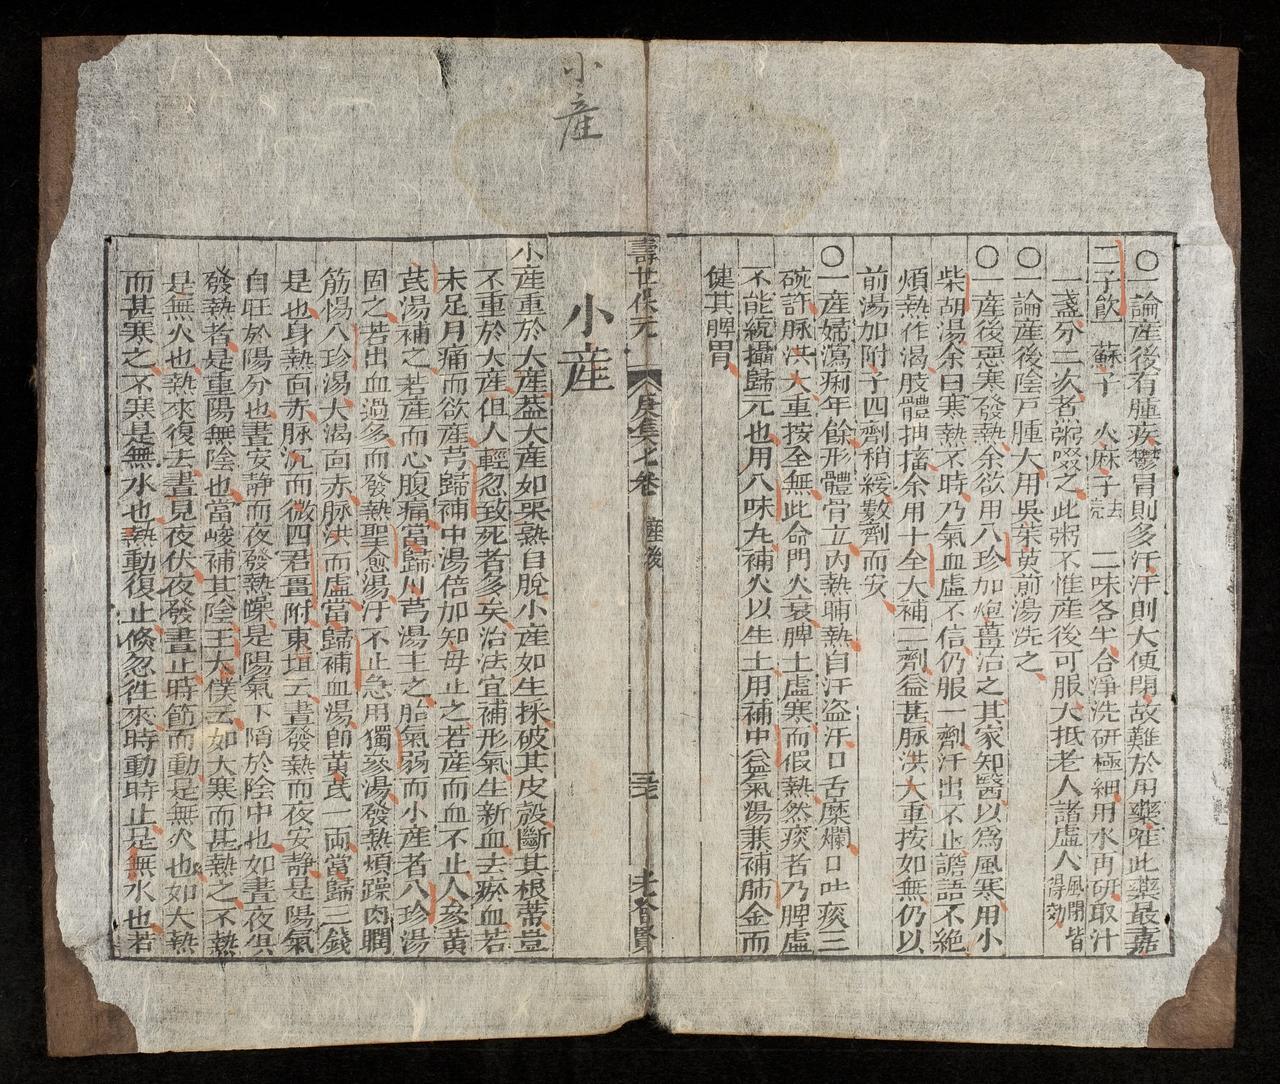 小產
〇一論產後有腫疾鬱冒則多汗汗則大便閉故難於用藥唯此藥最嘉
二子飲 蘇子 火麻子 法 二味各半合淨洗研極細用水再研取汁
一盞分二次煮粥啜之此粥不惟產後可服大抵老人諸虛人風閉皆得効
〇論產後陰戶腫大用吳茱萸煎湯洗之
〇一產後惡寒發熱余欲用八珍加炮薑治之其家知醫以為風寒用小
柴胡湯余曰寒熱不時乃氣血虛不信仍服一劑汗出不止譫語不絕
煩熱作渴肢體抽搐余用十全大補二劑益甚脉洪大重按如無仍以
前湯加附子四劑稍緩數劑而安
〇一產婦瀉痢年餘形體骨立內熱晡熱自汗盜汗口舌糜爛口吐痰三
碗許脉洪大重按全無此命門火衰脾土虛寒而假熱然痰者乃脾虛
不能統攝歸元也用八味丸補火以生土用補中益氣湯兼補肺金而
健其脾胃
壽世保元 庚集七卷 產後 三七 光啓賢
小產
小產重於大產葢大產如栗熟自脫小產如生採破其皮殼斷其根蒂豈
不重於大產但人輕忽致死者多矣治法宜補形氣生新血去瘀血若
未足月痛而欲產芎歸補中湯倍加知母止之若產而血不止人參黃
芪湯補之若產而心腹痛當歸川芎湯主之胎氣弱而小產者八珍湯
固之若出血過多而發熱聖愈湯汗不止急用獨參湯發熱煩躁肉瞤
筋惕八珍湯大渴面赤脉洪而虛當歸補血湯卽黃芪一兩當歸三錢
是也身熱面赤脉沉而微四君薑附東垣云晝發熱而夜安靜是陽氣
自旺於陽分也晝安靜而夜發熱躁是陽氣下陷於陰中也如晝夜俱
發熱者是重陽無陰也當峻補其陰王太僕云如大寒而甚熱之不熱
是無火也熱來復去晝見夜伏夜發晝止時節而動是無火也如大熱
而甚寒之不寒是無水也熱動復止倏忽徃來時動時止是無水也若